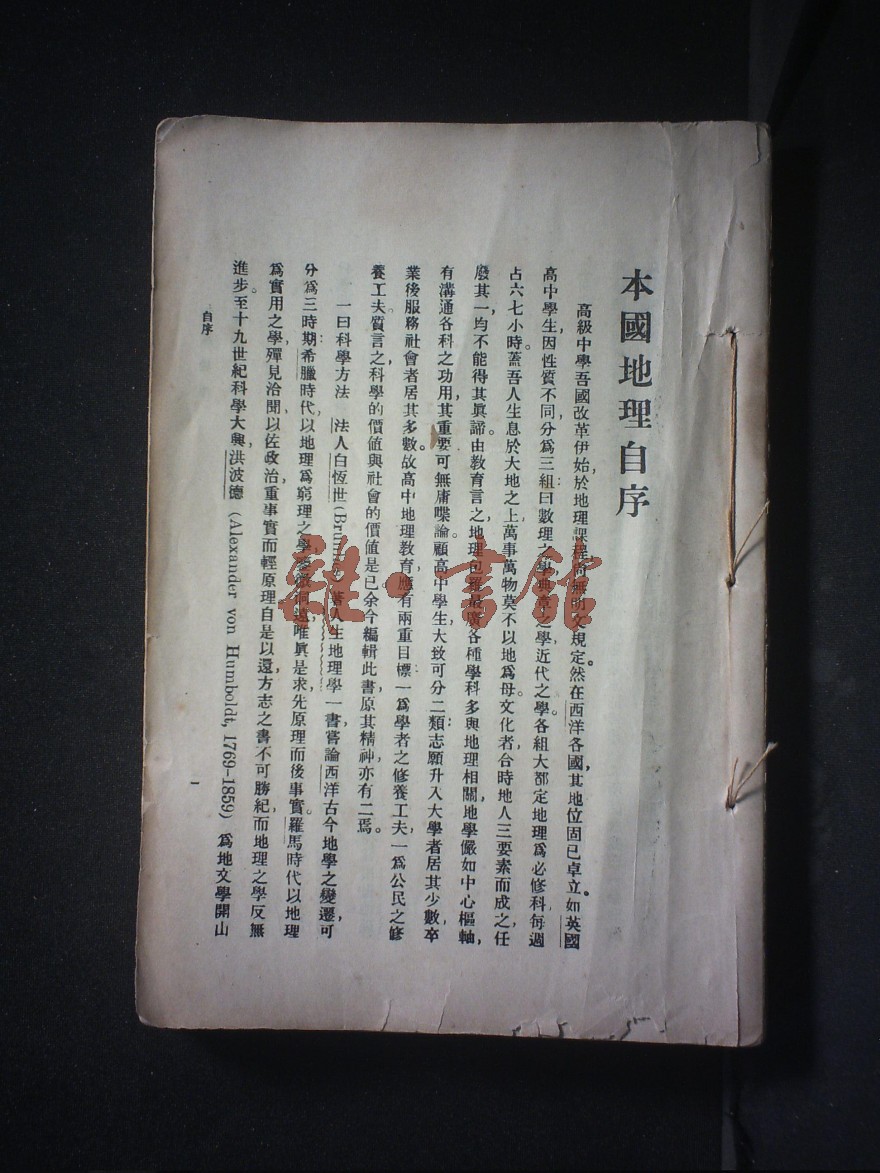 本國地理自序
高級中學吾國改革伊始，於地理課程尚無明文規定。然在西洋各國，其地位固已卓立。如英國
高中學生，因性質不同，分爲三組：曰數理之學，典章之學，近代之學。各組大都定地理爲必修科，每週
占六七小時。蓋吾人生息於大地之上，萬事萬物莫不以地爲母。文化者，合時地人三要素而成之，任
廢其一，均不能得其眞諦。由教育言之，地理包羅最廣，各種學科多與地理相關，地學儼如中心樞軸，
有溝通各科之功用，其重要可無庸喋論。顧高中學生大致可分二類：志願升入大學者居其少數，卒
業後服務社會者居其多數。故高中地理教育，應有兩重目標：一爲學者之修養工夫，一爲公民之修
養工夫。質言之，科學的價値與社會的價値是已。余今編輯此書，原其精神，亦有二焉。
一曰科學方法 法人白恆世(Brunhes)著人生地理學一書，嘗論西洋古今地學之變遷，可
分爲三時期：希臘時代，以地理爲窮理之學，洞遠，唯眞是求，先原理而後事實。羅馬時代，以地理
爲實用之學，殫見洽聞，以佐政治，重事實而輕原理。自是以還，方志之書不可勝紀，而地理之學反無
進步。至十九世紀科學大興，洪波德 (Alexander von Humboldt, 1769-1859) 爲地文學開山
自序
一
雜·書館